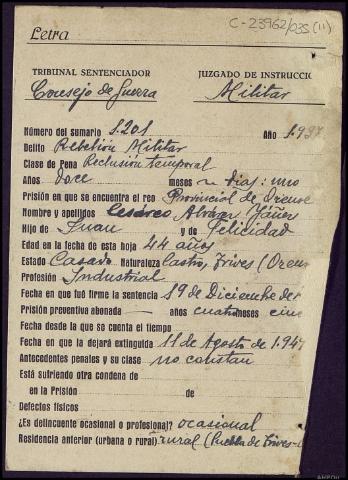 C-23962/035 (11)
Letra
TRIBUNAL SENTENCIADOR JUZGADO DE INSTRUCCIÓ
Consejo de Guerra Militar
Número del sumario 1.201 Año 1.937
Delito Rebelión Militar
Clase de Pena Reclusión temporal
Años doce meses días: uno
Prisión en que se encuentra el reo Provincial de Orense
Nombre y apellidos Cesáreo Alvarez Yáñez
Hijo de Juan y de Felicidad
Edad en la fecha de esta hoja 44 años
Estado Casado Naturaleza Castro, Trives (Oren
Profesión Industrial
Fecha en que fué firme la sentencia 19 de Diciembre de
Prisión preventiva abonada años cuatro meses
Fecha desde la que se cuenta el tiempo
Fecha en que la dejará extinguida 11 de Agosto de 1.94
Antecedentes penales y su clase no constan
Está sufriendo otra condena de
en la Prisión de
Defectos físicos
¿Es delincuente ocasional o profesional? ocasional
Residencia anterior (urbana o rural) rural (Puebla de Trives-